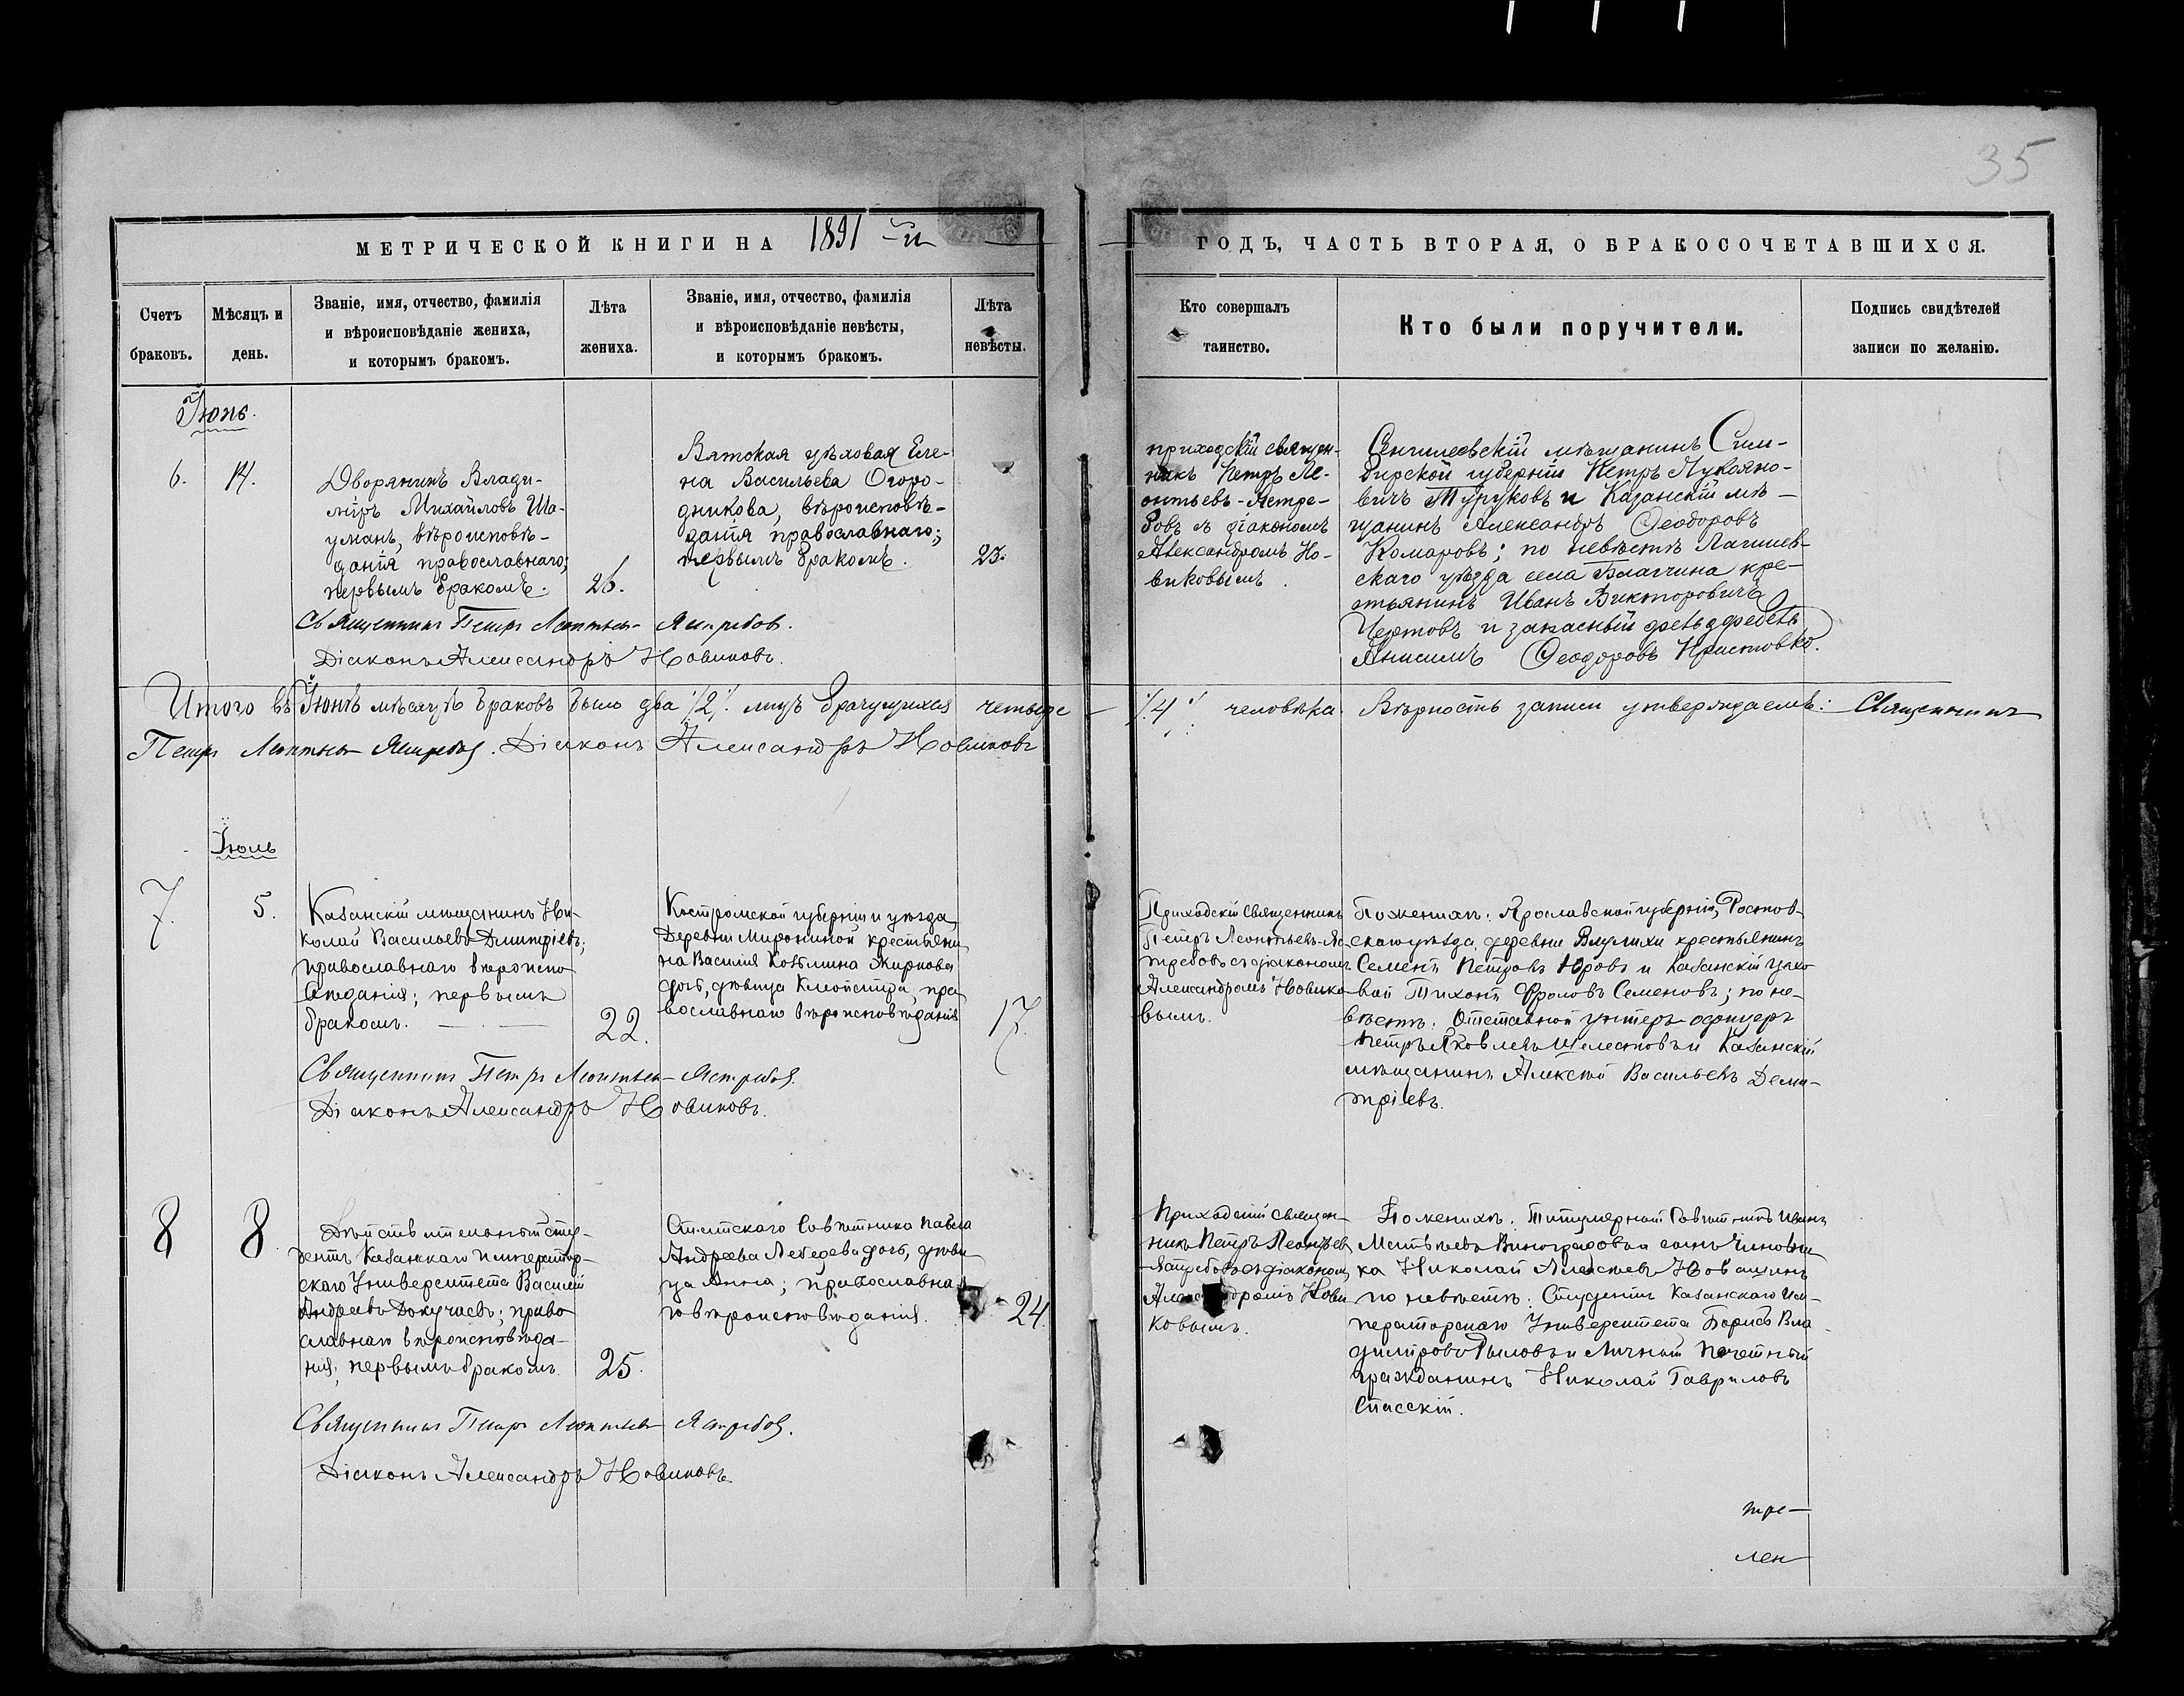 35
МЕТРИЧЕСКОЙ КНИГИ НА 1891 -й
ГОДЪ, ЧАСТЬ ВТОРАЯ, О БРАКОСОЧЕТАВШИХСЯ.
Счетъ
браковъ.
Мѣсяцъ и
день.
Званіе, имя, отчество, фамилія
и вѣроисповѣданіе жениха,
и которымъ бракомъ.
Лѣта
жениха.
Званіе, имя, отчество, фамилія
и вѣроисповѣданіе невѣсты,
и которымъ бракомъ.
Лѣта
невѣсты.
Кто совершалъ
таинство.
Кто были поручители.
Подпись свидѣтелей
записи по желанію.
Іюнь.
6.
14.
Дворянинъ Влади-
міръ Михайловъ Ша-
уманъ, вѣроисповѣ-
данія православнаго;
первымъ бракомъ.
26.
Вятская цѣховая Еле-
на Васильева Огоро-
дникова, вѣроисповѣ-
данія православнаго;
первымъ бракомъ.
23.
приходскій священ-
никъ Петръ Ле-
онтьевъ-Ястре-
бовъ съ діакономъ
Александромъ Но-
виковымъ.
Сенгилеевскій мѣщанинъ Сим-
бирской губерніи Петръ Лукояно-
вичъ Туруковъ и Казанскій мѣ-
щанинъ Александръ Ѳеодоровъ
Комаровъ; по невѣстѣ Лаишев-
скаго уѣзда села кре-
стьянинъ Иванъ Викторовичъ
Чертовъ и запасный
Анисимъ Ѳеодоровъ
Священникъ Петръ Леонтьевъ-Ястребовъ.
Діаконъ Александръ Новиковъ.
Итого въ Іюнѣ мѣсяцѣ браковъ было два /2/ лицъ брачущихся четыре
/4/ человѣка. Вѣрность записи утверждаемъ: Священникъ
Петръ Леонтьевъ Ястребовъ. Діаконъ Александръ Новиковъ
Іюль
7.
5.
Казанскій мѣщанинъ Ни-
колай Васильевъ Дмитріевъ;
православнаго вѣроиспо-
вѣданія; первымъ
бракомъ.
22.
Костромской губерніи и уѣзда,
Деревни Мирониной крестьяни-
на Василія Козьмина Жиркова
дочь, дѣвица Клеопатра, пра-
вославнаго вѣроисповѣданія
17.
Приходскій Священникъ
Петръ Леонтьевъ-Яс-
требовъ съ діакономъ
Александромъ Новико-
вымъ.
По женихѣ: Ярославской губерніи, Ростов-
скаго уѣзда, деревни крестьянинъ
Семенъ Петровъ Юровъ и Казанскій цѣхо-
вой Тихонъ Фроловъ Семеновъ; по не-
вѣстѣ: Отставной унтеръ-офицеръ
Петръ Яковлевъ Шелестовъ и Казанскій
мѣщанинъ Алексѣй Васильевъ Дели-
тріевъ.
Священникъ Петръ Леонтьевъ-Ястребовъ.
Діаконъ Александръ Новиковъ.
8
8
Дѣйствительный сту-
дентъ Казанскаго Император-
скаго Университета Василій
Андреевъ Докучаевъ; право-
славнаго вѣроисповѣда-
нія; первымъ бракомъ.
25.
Статскаго Совѣтника Павла
Андреева Лебедева дочь, дѣви-
ца Анна; православна-
го вѣроисповѣданія.
24
Приходскій Священ-
никъ Петръ Леонтьевъ
Ястребовъ съ діакономъ
Александромъ Нови-
ковымъ.
По женихѣ: Титулярный Совѣтникъ Иванъ
Матвѣевъ Виноградовъ и сынъ Чиновни-
ка Николай Алексѣевъ
по невѣстѣ: Студентъ Казанскаго Им-
ператорскаго Университета Борисъ Вла-
диміровъ Рыловъ и Личный Почетный
гражданинъ Николай Гавриловъ
Спасскій.
Священникъ Петръ Леонтьевъ Ястребовъ.
Діаконъ Александръ Новиковъ.
тре-
лен-